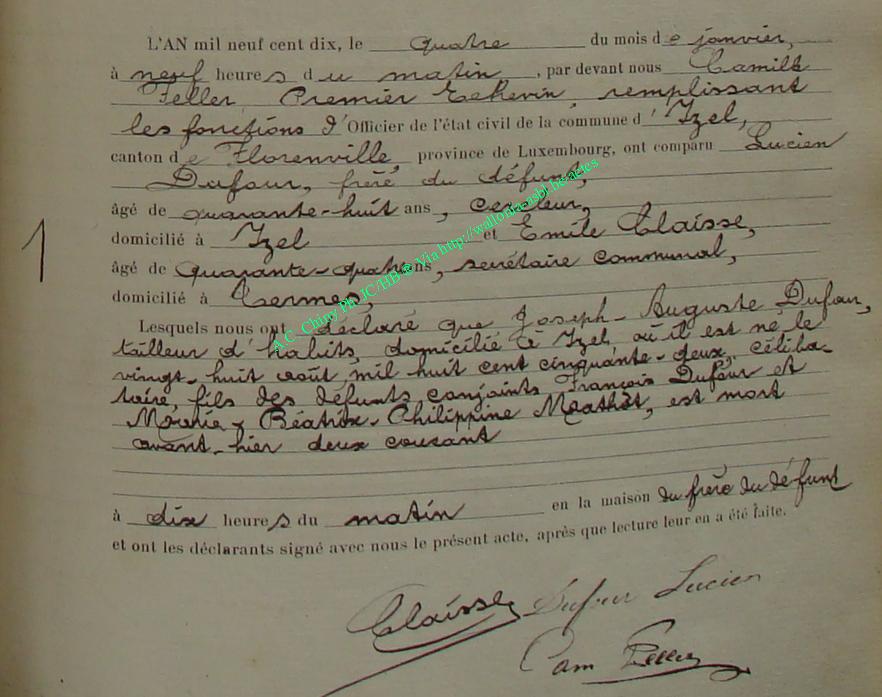 L'AN mil neuf cent dix, le quatre du mois de janvier,
à neuf heures du matin, par devant nous Camille
Feller, Premier Echevin, remplissant
les fonctions d'Officier de l'état civil de la commune d'Izel,
canton de Florenville, province de Luxembourg, ont comparu Lucien
Dufour, frère du défunt,
âgé de quarante-huit ans,
domicilié à Izel et Emile Claisse,
âgé de quarante-quatre ans, secrétaire communal,
domicilié à Termes,
Lesquels nous ont déclaré que Joseph-Auguste Dufour,
tailleur d'habits, domicilié à Izel, où il est né le
vingt-huit août mil huit cent cinquante-deux, céliba-
taire, fils des défunts conjoints François Dufour et
Marie-Béatrix-Philippine Mathot, est mort
avant-hier deux courant
à dix heures du matin en la maison du frère du défunt
et ont les déclarants signé avec nous le présent acte, après que lecture leur en a été faite.
Claisse Dufour Lucien
Cam Feller
1
A.C. Chiny Ph JC/HB © Via http://wallonia-asbl.be-actes